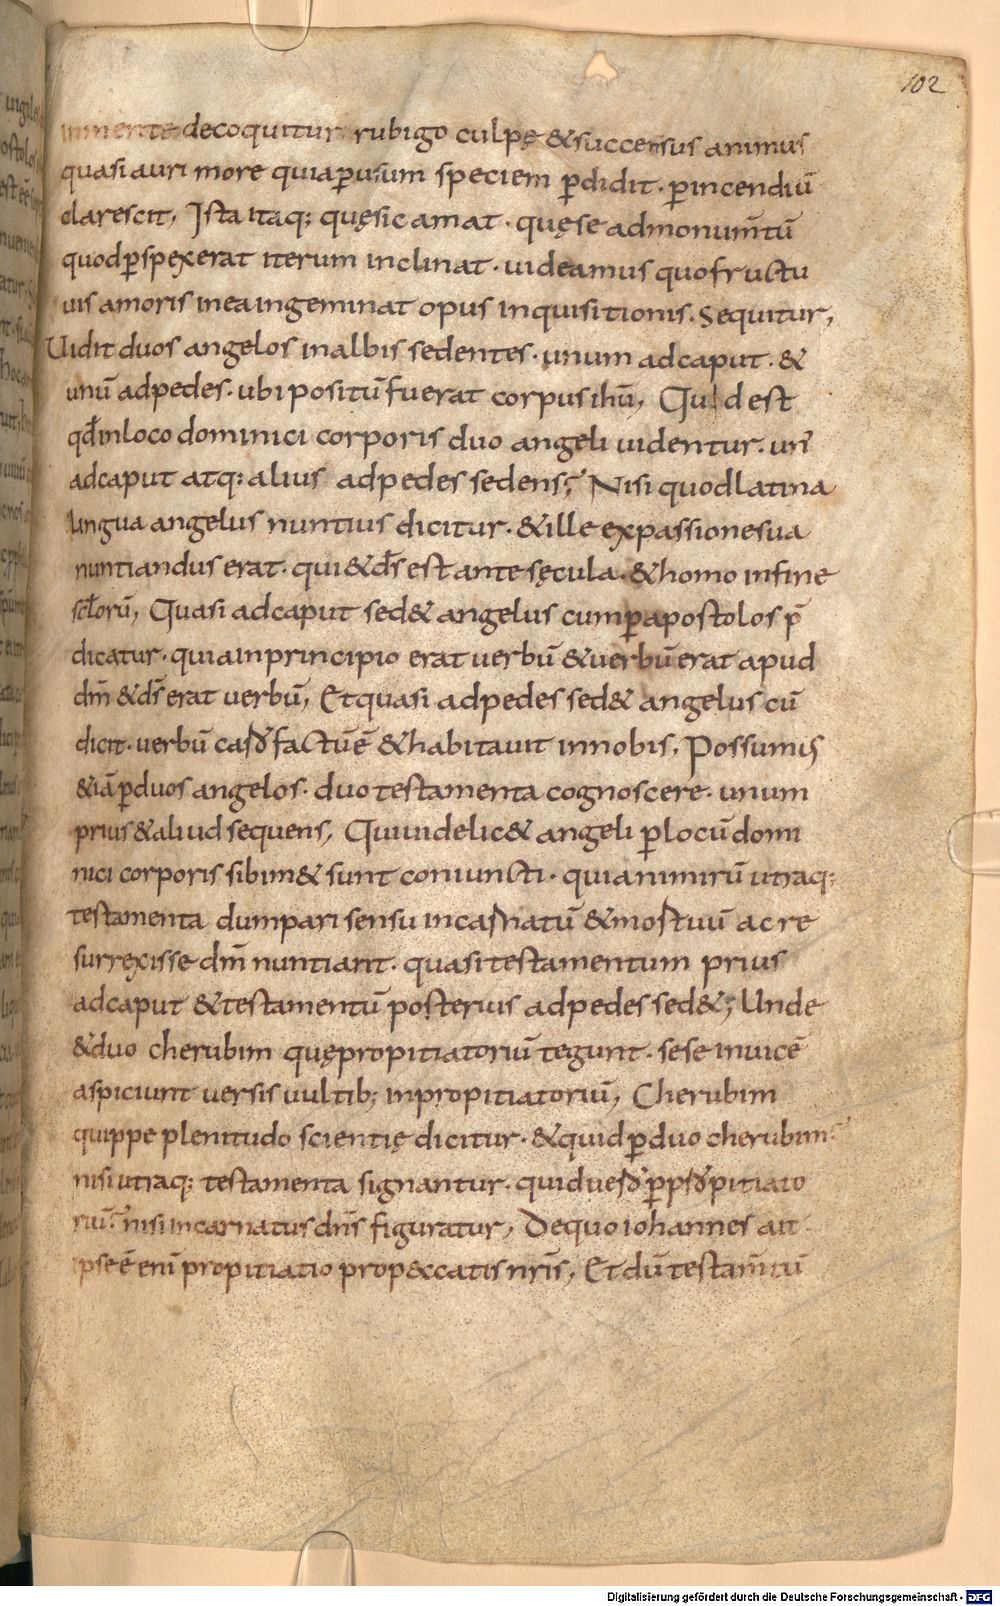 102
in mente decoquitur rubigo culpę & succensus animus
quasi auri more quia ꝑ usum speciem ꝑdidit · ꝑ incendiū
clarescit, Ista itaq; quę sic amat · quę se ad monum̄tū
quod ꝑspexerat iterum inclinat · uideamus quo fructu
uis amoris in ea ingeminat opus inquisitionis. Sequitur,
Uidit duos angelos in albis sedentes · unum ad caput · &
unū ad pedes · ubi positū fuerat corpus ihū, Quid est
qđ in loco dominici corporis duo angeli uidentur · un᾽
ad caput atq; alius ad pedes sedens; Nisi quod latina
lingua angelus nuntius dicitur · & ille ex passione sua
nuntiandus erat · qui & ds̄ est ante sęcula · & homo in fine
sclorū, Quasi ad caput sed& angelus cum ꝑ apostolos p̄
dicatur · quia in principio erat uerbū & uerbū erat apud
dm̄ & ds̄ erat uerbū, Et quasi ad pedes sed& angelus cū
dicit · uerbū caro factū ē & habitauit in nobis, Possumus
& iā ꝑ duos angelos · duo testamenta cognoscere · unum
prius & aliud sequens, Qui uidelic& angeli ꝑ locū domi
nici corporis sibim& sunt coniuncti · quia nimirū utraq;
testamenta dum pari sensu incarnatū & mortuū ac re
surrexisse dm̄ nuntiant · quasi testamentum prius
ad caput & testamentū posterius ad pedes sed&; Unde
& duo cherubim quę propitiatoriū tegunt · sese inuicē
aspiciunt uersis uultib; in propitiatoriū, Cherubim
quippe plenitudo scientię dicitur · & quid ꝑ duo cherubim
nisi utraq; testamenta signantur · quid uero ꝑ propitiato
riū nisi incarnatus dn̄s figuratur, De quo iohannes ait
ipse ē enī propitiatio pro p&ccatis nr̄is, Et dū testam̄tū
Digitalisierung gefördert durch die Deutsche Forschungsgemeinschaft - DFG